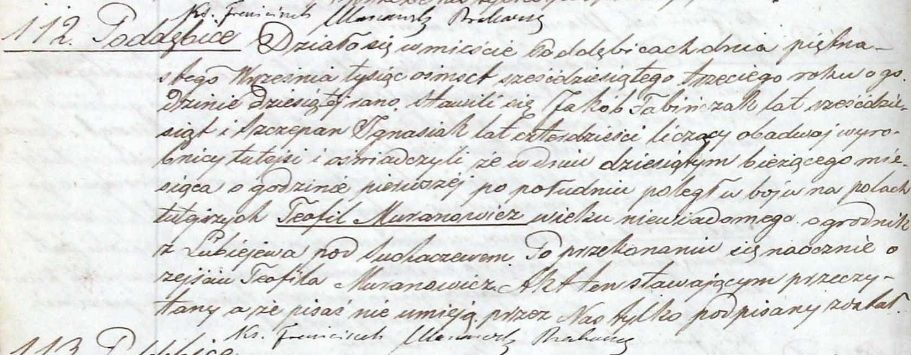 112. Poddębice Działo się w mieście Poddębicach dnia piętna-
stego Września tysiąc ośmset sześćdziesiątego trzeciego roku o go
dzinie dziesiątej rano, stawili się Jakób Fabińczak lat sześćdzie-
siąt i Szczepan Ignasiak lat czterdzieści liczący obadwaj wyro-
bnicy tutejsi i oświadczyli że w dniu dziesiątym bieżącego mie-
siąca o godzinie pierwszéj po południu poległ w boju na polach
tutejszych Teofil Muranowicz wieku niewiadomego ogrodnik
z Lubiejewa pod Sochaczewem. Po przekonaniu się naocznie o
zejściu Teofila Muranowicz. Akt ten stawającym przeczy-
tany a że pisać nie umieją przez Nas tylko podpisany został.
113.